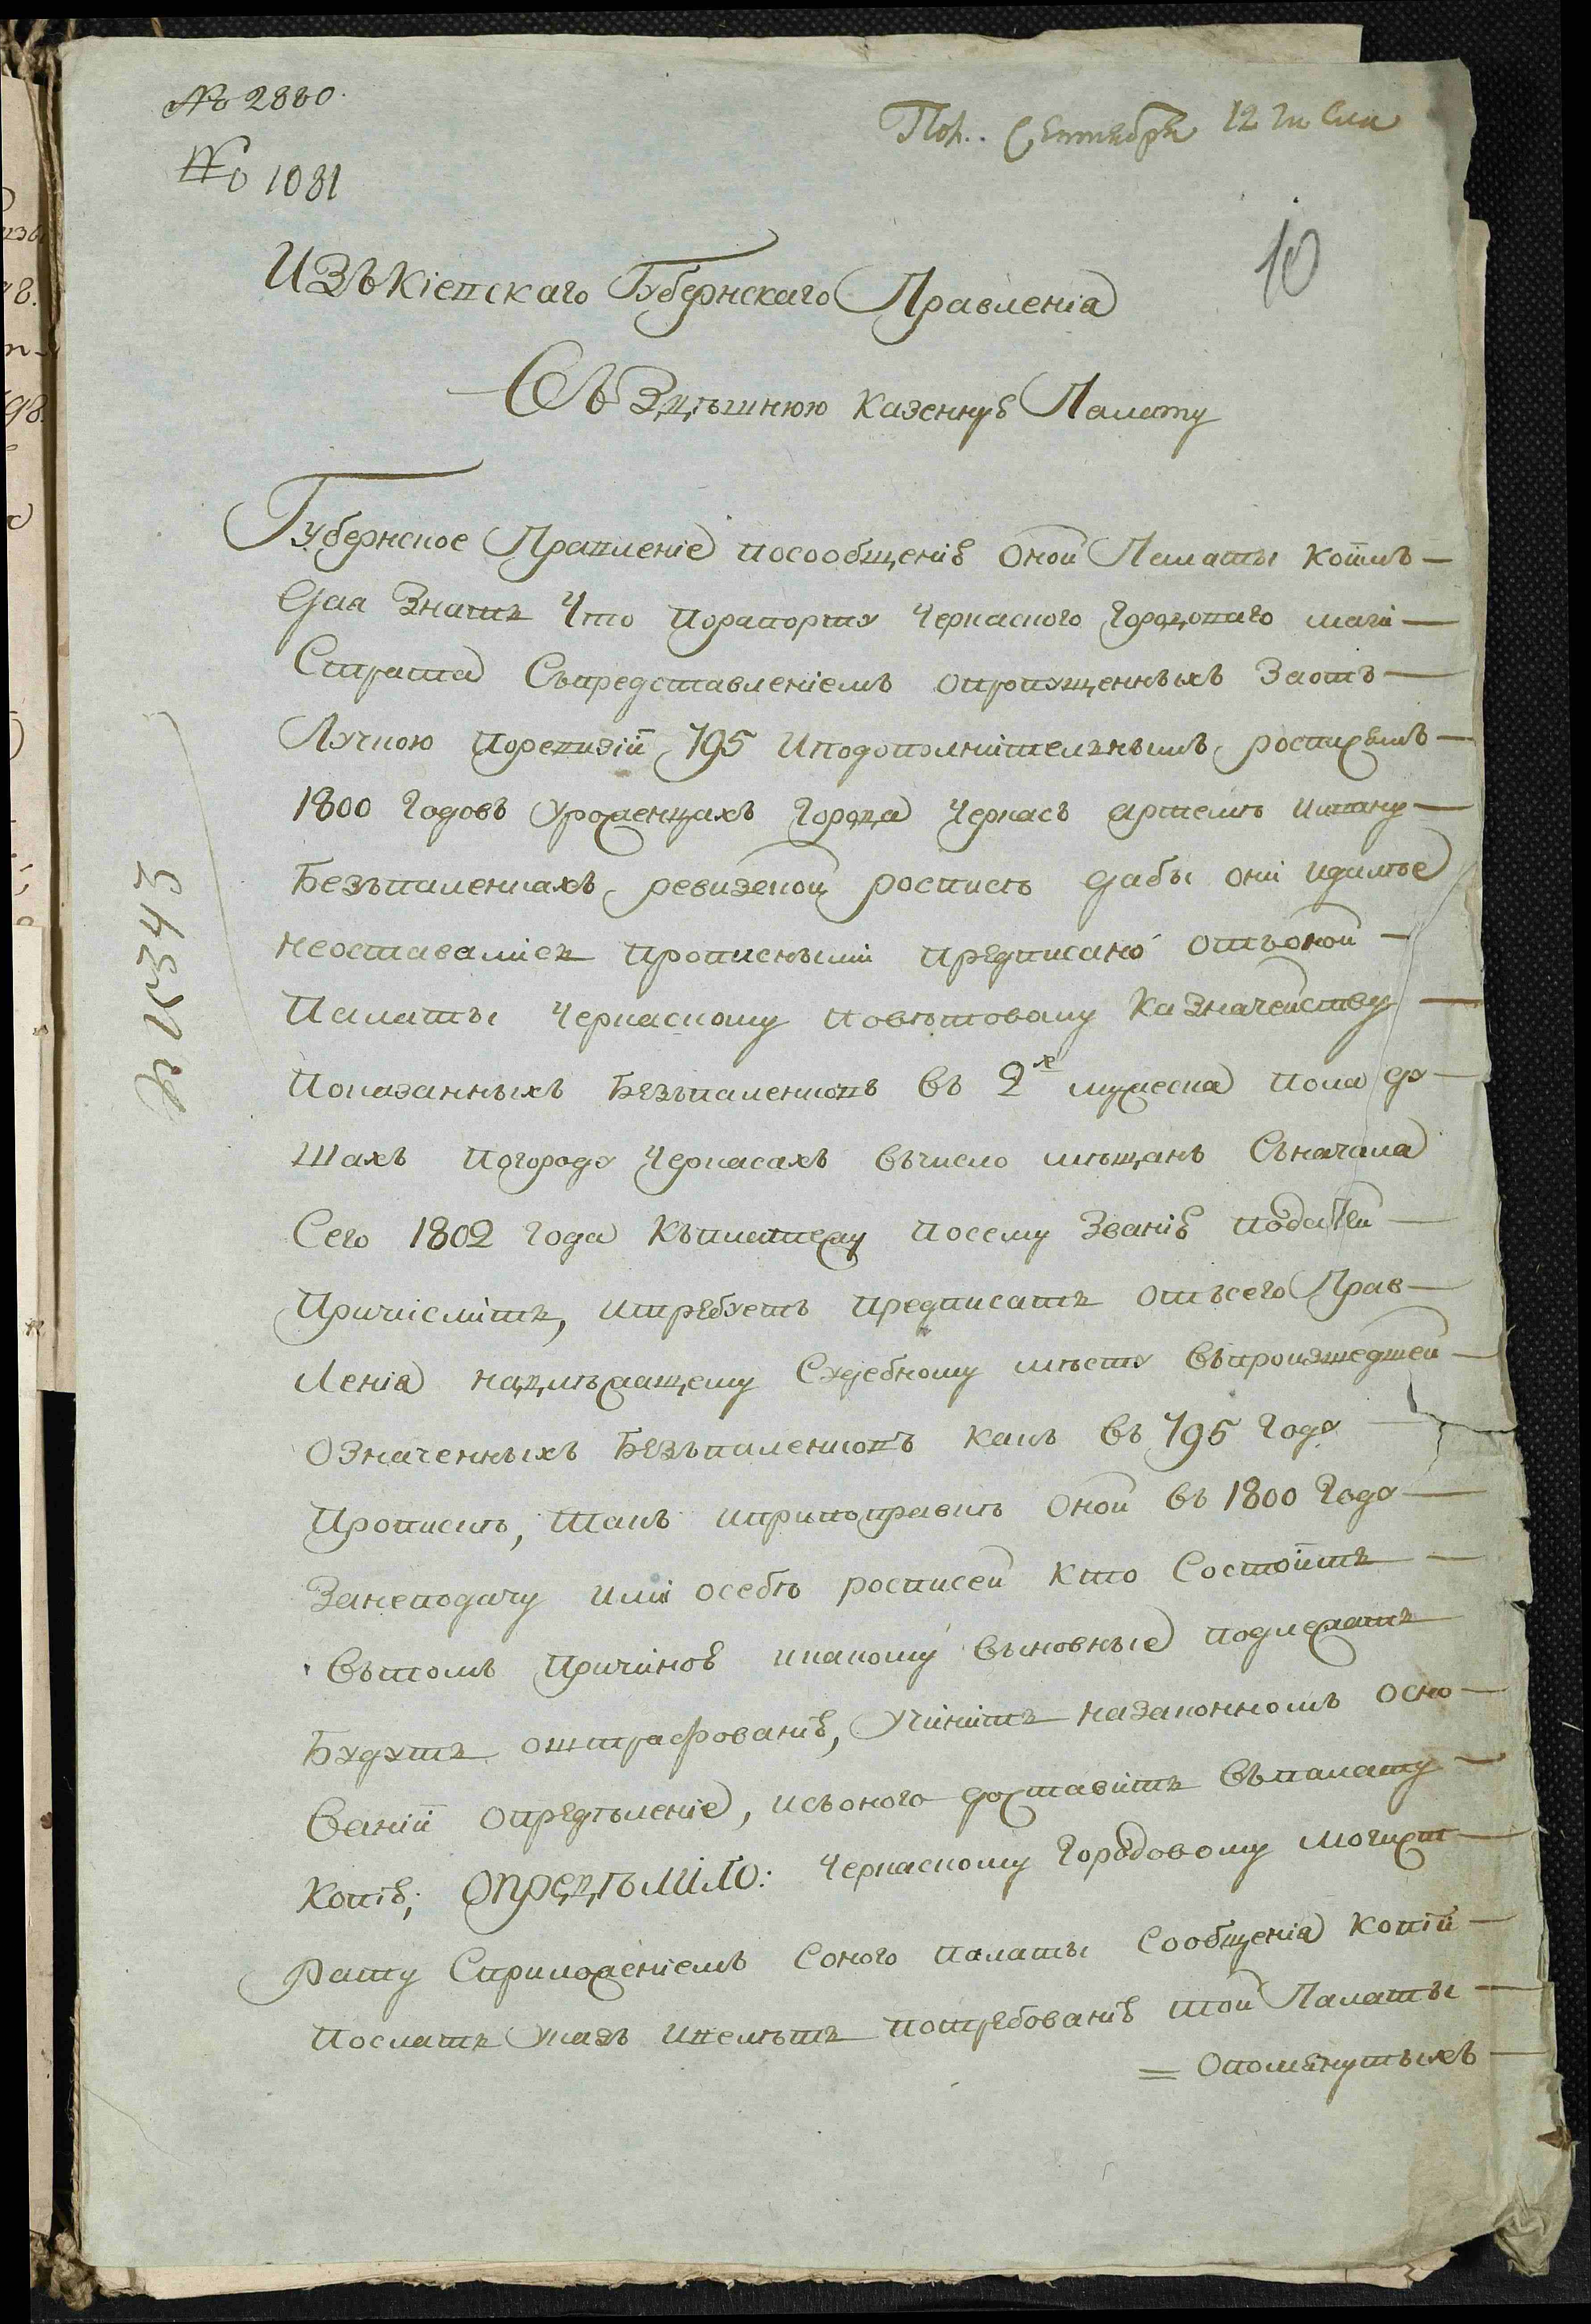 № 2880.
Пол. Сентября 12 го
№ 1081
10
Изъ Кіевскаго Губернскаго Правленія
Въ Здѣшнюю Казенную Палату
Губернское Правленіе посообщенію Оной Палаты коимъ
Даа Знать Что порапорту Черкаского Городового маги
Страта Съпредставленіемъ опропущенныхъ Заотъ
Лучкою поревизіи 795 иподополнительнымъ росписямъ
1800 Годовъ уроженцахъ Города Черкасъ Артему ивану
Безъпаленкахъ ревизской росписѣ дабы они идалѣе
неоставались прописными предписано отъоной
Палаты Черкаскому повѣтовому Казначейству
Показанныхъ Безъпаленковъ въ 2х мужеска пола ду
шахъ погороду Черкасахъ въчисло мѣщанъ Съначала
Сего 1802 года Къплатежу посему Званію податей
Причислить, итребуетъ предписать отъсего Прав
Ленія надлѣжащему Судебному мѣсту въпроизшедшей
Означенныхъ Безъпаленковъ какъ въ 795 Году
Прописки, такъ иприпоправкѣ Оной въ 1800 Году
Занеподачу ими осебѣ росписей кто Состоитъ
Вътомъ Причиною икакому выновные подлежать
Будутъ оштрафованію, Учинить назаконномъ осно
Ваніи опредѣленіе, исъоного доставить въпалату
Копію; Опредѣлило: Черкаскому Городовому магист
Рату Сприложеніемъ Соного палаты Сообщенія копіи
Послать Указъ ивелѣть потребованію той Палаты
= Опомянутыхъ
№ 15343